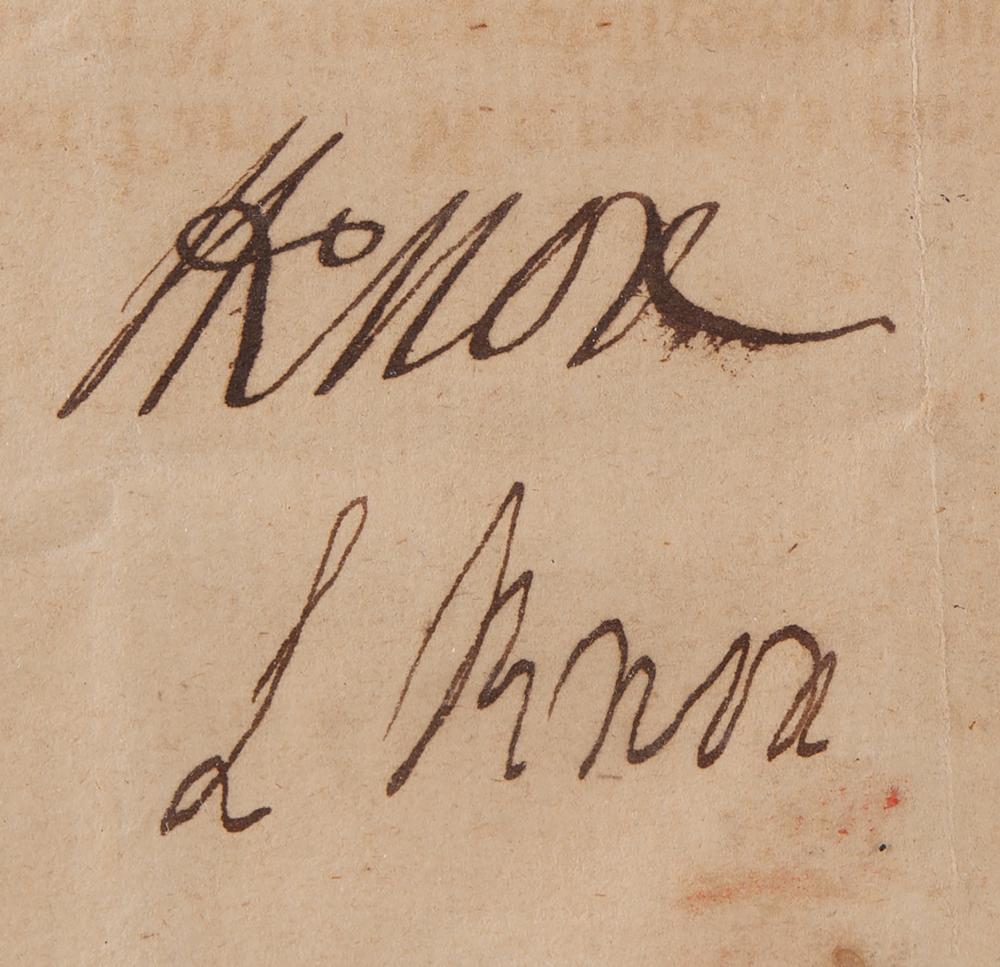 HKnox
L Knox